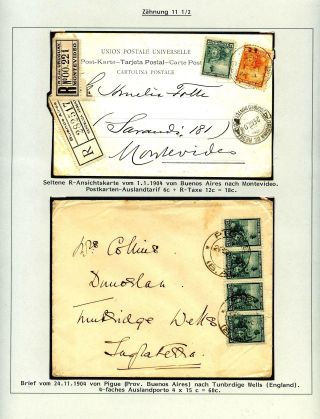 Zähnung 11 1/2
UNION POSTALE UNIVERSELLE
Post-Karte—Tarjeta Postal—Carte Post
CARTOLINA POSTALE
R
MONTEVIDEO
R
Amelia
Sarandi 181
Montevideo
Seltene R-Ansichtskarte vom 1.1.1904 von Buenos Aires nach Montevideo.
Postkarten-Auslandtarif 6c + R-Taxe 12c = 18c.
Mrs Collins
Dunoslan
Tunbridge Wells
Inglaterra
Brief vom 24.11.1904 von Pigue (Prov. Buenos Aires) nach Tunbrdige Wells (England).
4-faches Auslandporto 4 x 15 c = 60c.